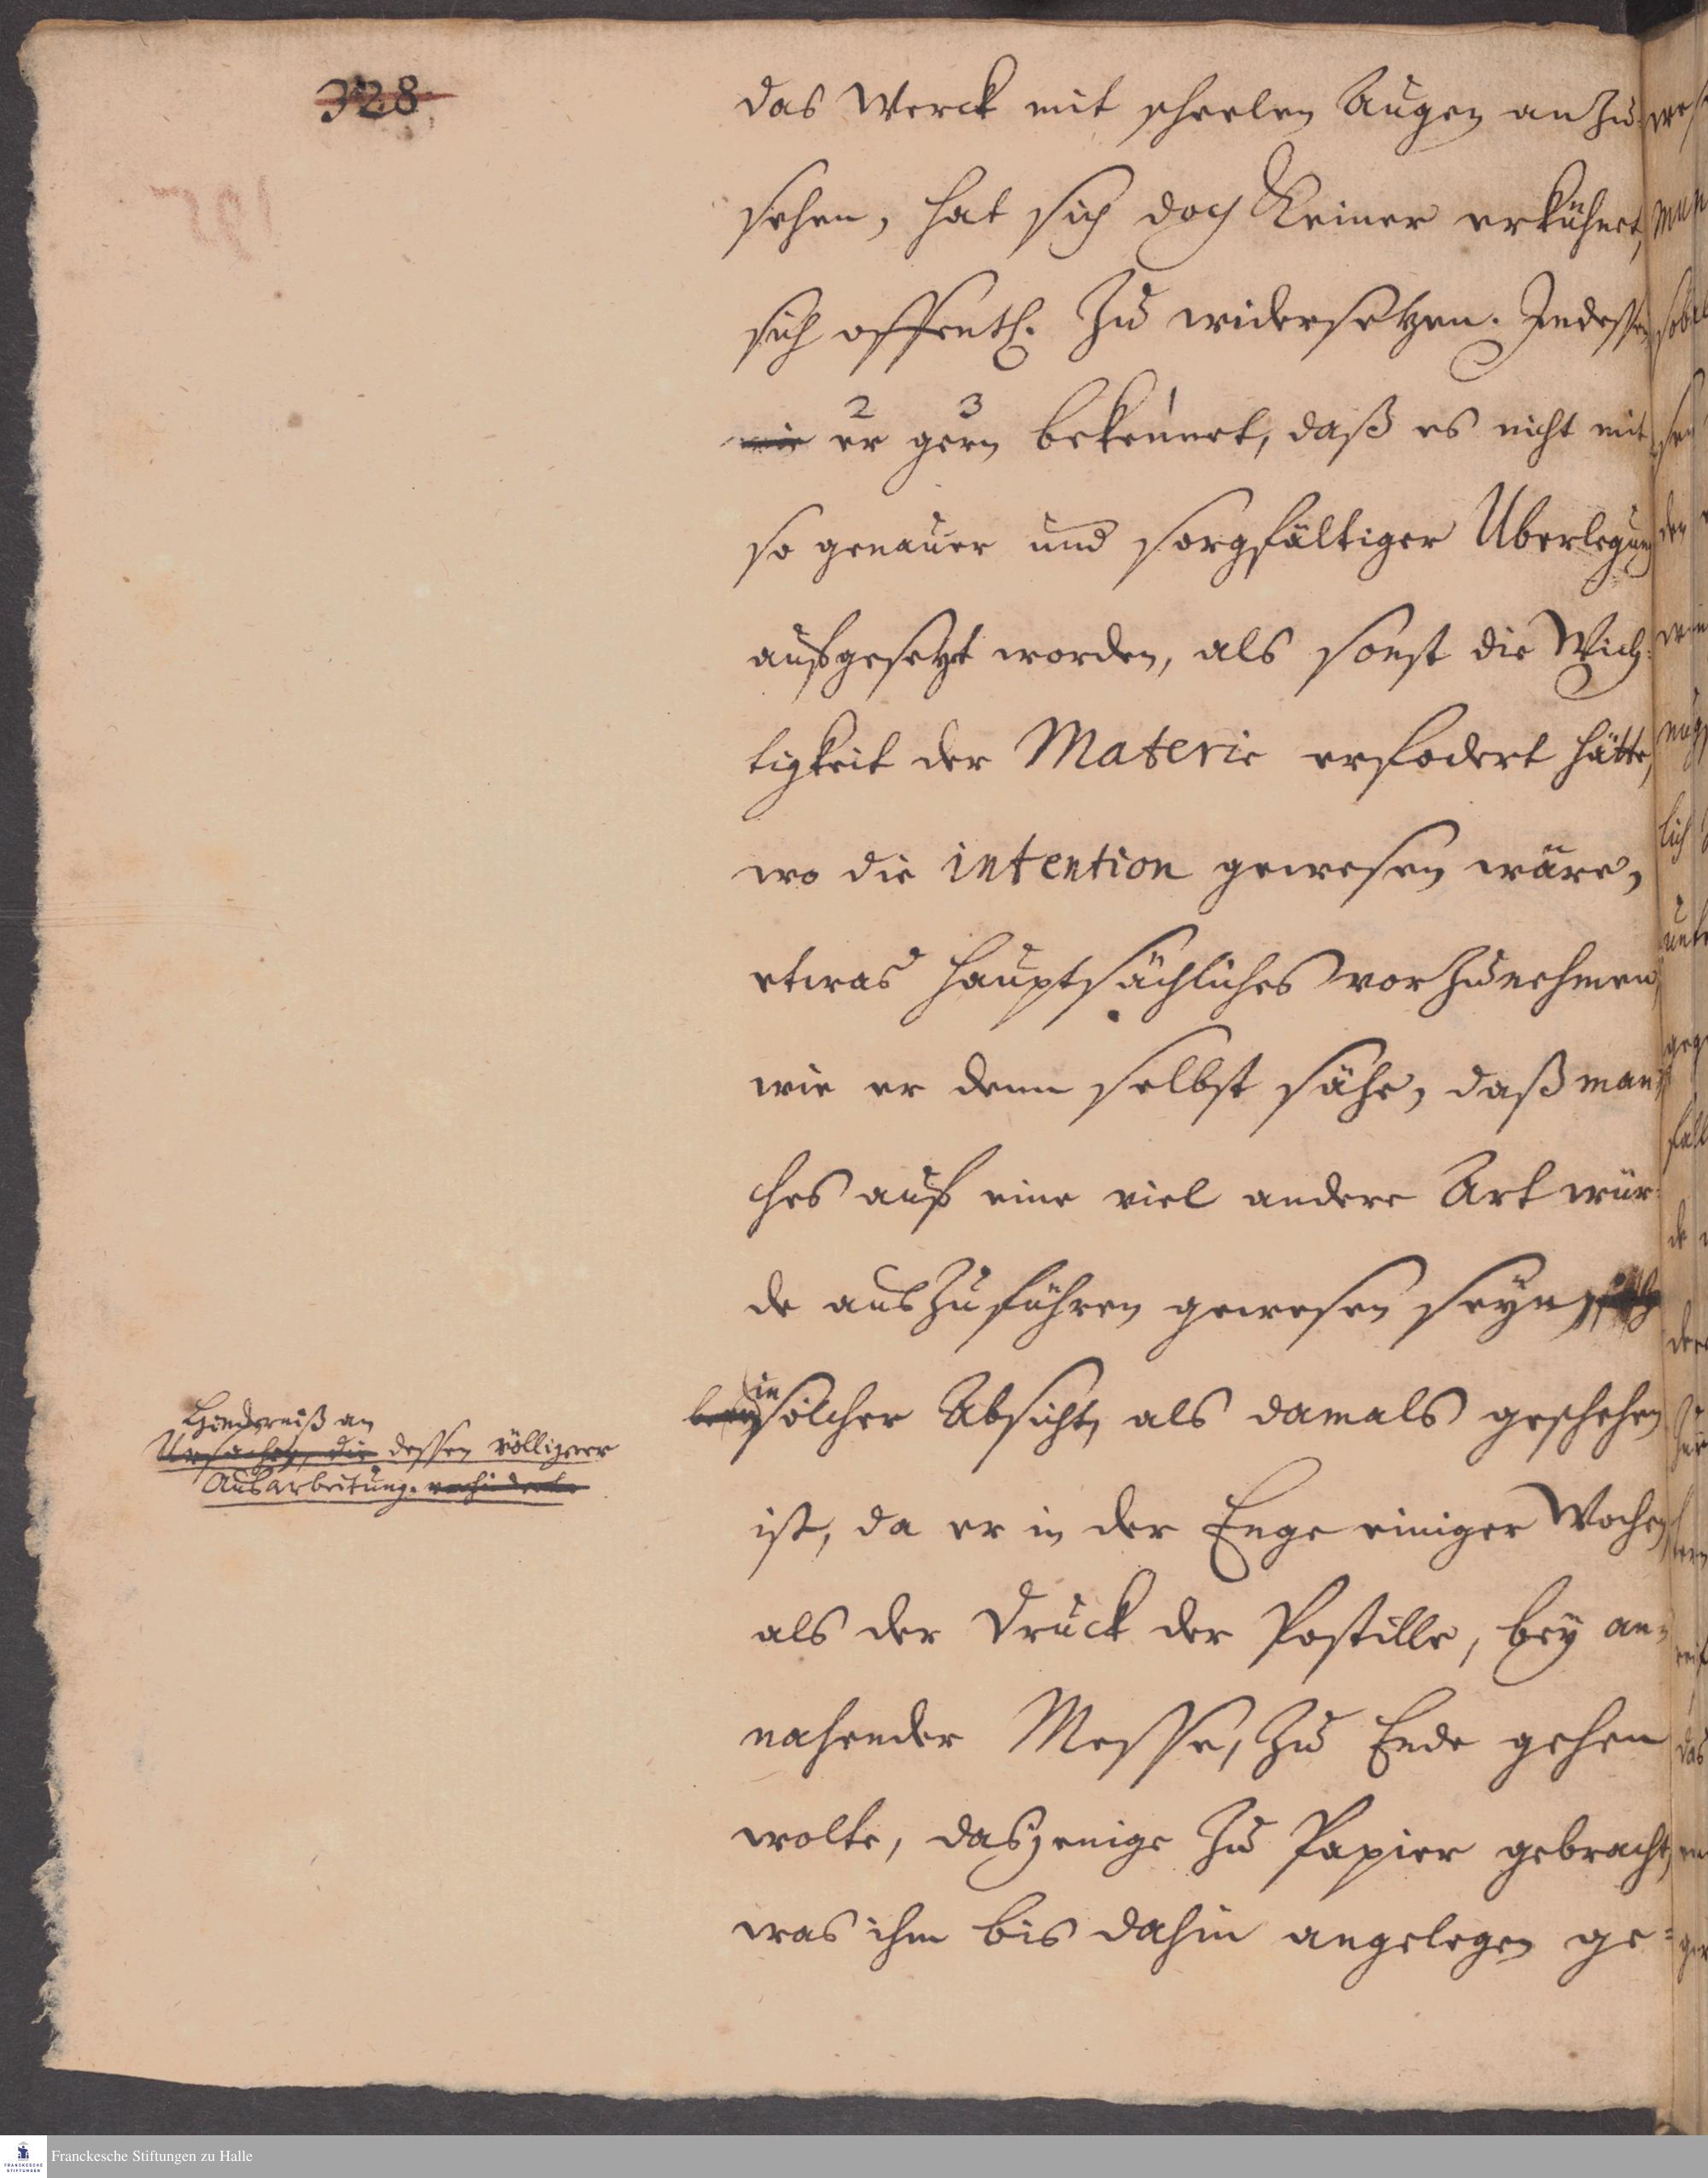 328
das Werck mit scheelen Augen anzu-
sehen, hat sich doch Keiner erkühnet,
sich offentl. zu widersetzen. Indessen
2 3 1
wie er gern bekennet, daß es nicht mit
so genauer und sorgfältiger Uberlegung
aufgesetzt worden, als sonst die Wich-
tigkeit der Materie erfodert hätte,
wo die intention gewesen wäre,
etwas hauptsächliches vorzunehmen,
wie er denn selbst sähe, daß man-
ches auf eine viel andere Art wür-
de auszuführen gewesen seyn,
in
solcher Absicht, als damals geschehen
ist, da er in der Enge einiger Wochen,
als der Druck der Postille, bey an-
nahender Messe, zu Ende gehen
wolte, dasjenige zu Papier gebracht,
was ihm bis dahin angelegen ge-
Hinderniß an
Ursachen, die dessen völligerer
Ausarbeitung. verhinderte
Franckesche Stiftungen zu Halle